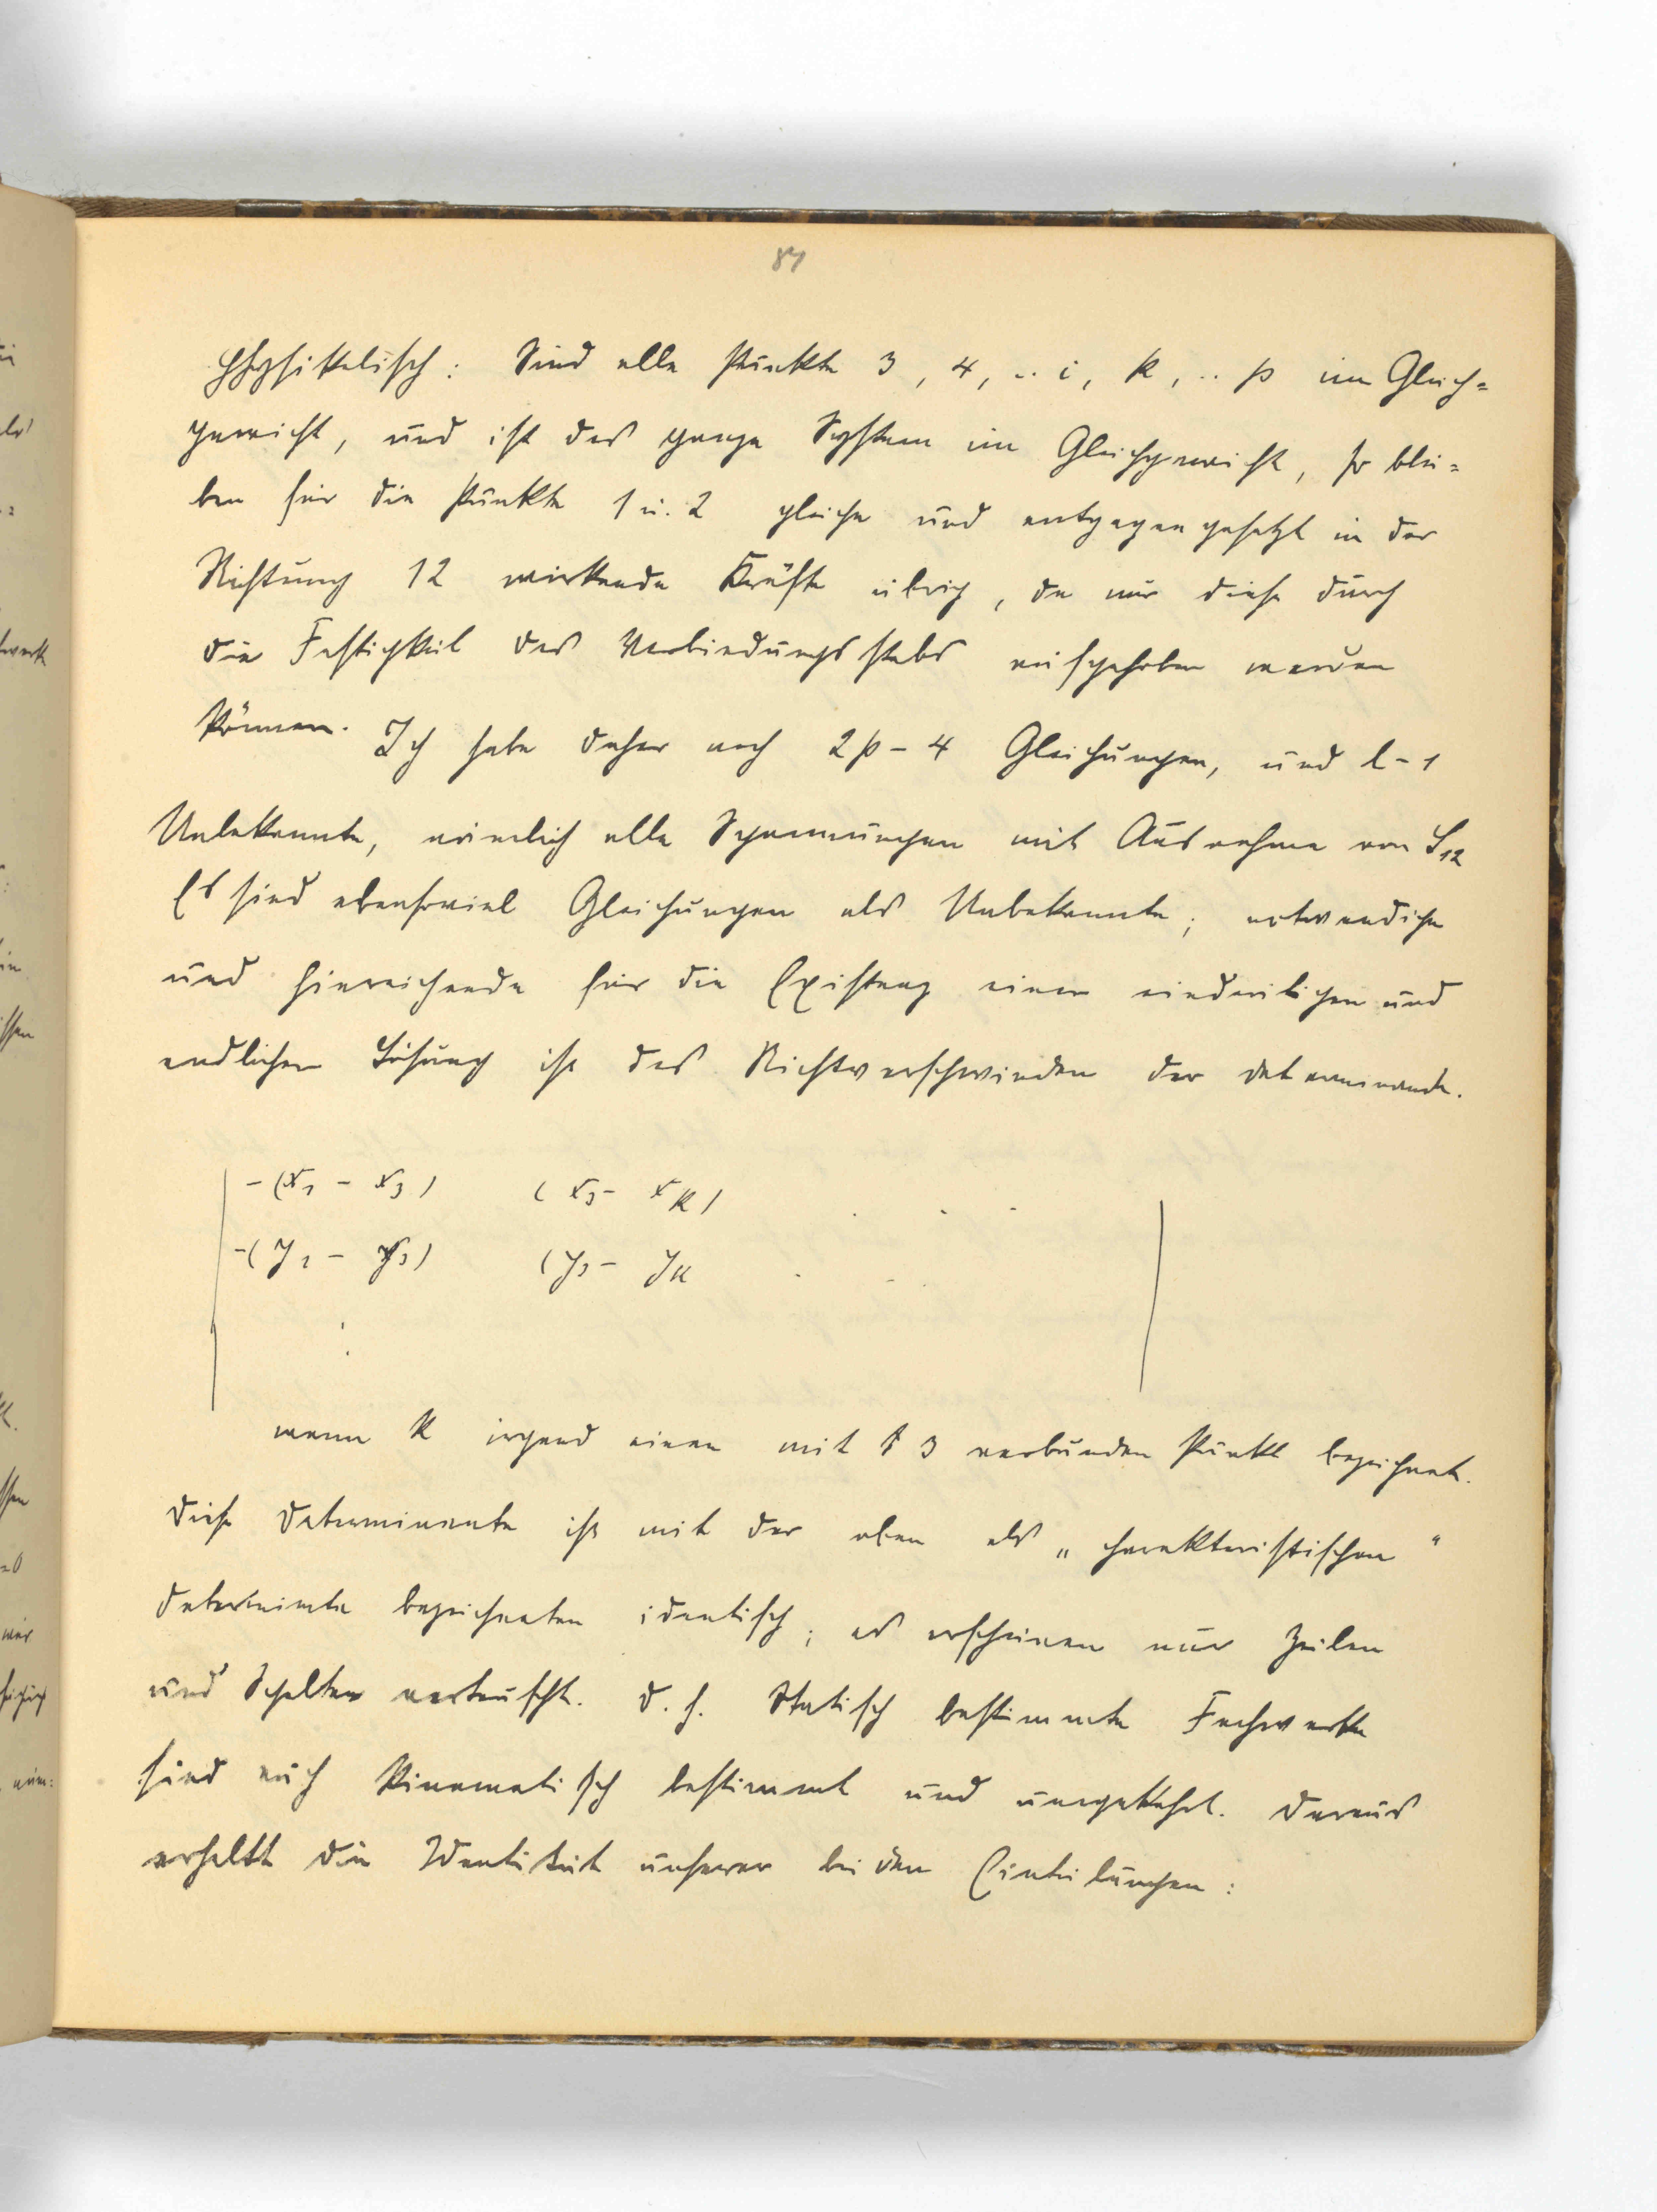 87
Physikalisch: Sind alle Punkte 3, 4, .. i, k, .. p im Gleich=
gewicht, und ist das ganze System im Gleichgewicht, so blei=
ben für die Punkte 1 u. 2 gleiche und entgegengesetzt in der
Richtung 12 wirkende Kräfte übrig, da nur diese durch
die Festigkeit des Verbindungsstabs aufgehoben werden
können. Ich habe daher noch 2p - 4 Gleichungen, und l - 1
Unbekannte, nämlich alle Spannungen mit Ausnahme von S12
Es sind ebensoviel Gleichungen als Unbekannte; notwendige
und hinreichende für die Existenz einer eindeutigen und
endlichen Lösung ist das Nichtverschwinden der Determinante.
-(x1 - x3) (x3 - xk) . . .
-(y1 - y3) (y3 - yk . . .
:
wenn k irgend einen mit 3 verbunden Punkt bezeichnet.
Diese Determinante ist mit der oben als „charakteristischen“
Determinte bezeichneten identisch; es erscheinen nur Zeilen
und Spalten vertauscht. D. h. Statisch bestimmte Fachwerke
sind auch kinematisch bestimmt und umgekehrt. Daraus
erhellt die Identität unserer beiden Einteilungen: